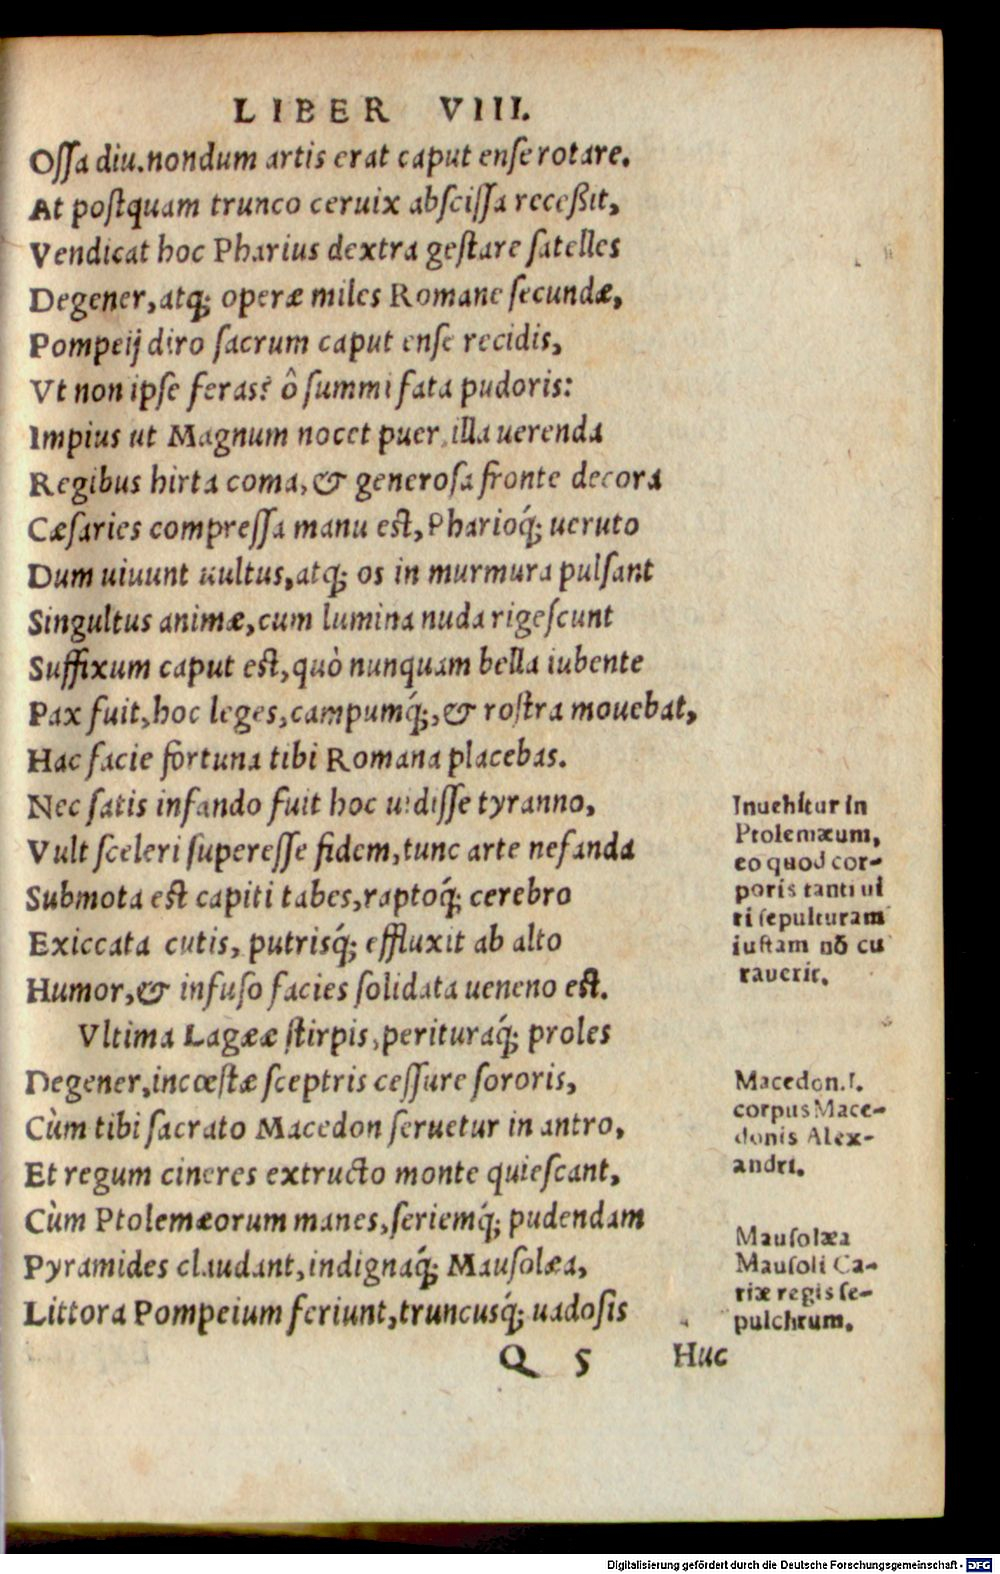 LIBER VIII.
Ossa diu. nondum artis erat caput ense rotare.
At postquam trunco ceruix abscissa receßit,
Vendicat hoc Pharius dextra gestare satelles
Degener, atq; operæ miles Romane secundæ,
Pompeij diro sacrum caput ense recidis,
Vt non ipse feras? ô summi fata pudoris:
Impius ut Magnum nocet puer, illa uerenda
Regibus hirta coma, & generosa fronte decora
Cæsaries compressa manu est, Pharioq́; ueruto
Dum uiuunt uultus, atq; os in murmura pulsant
Singultus animæ, cum lumina nuda rigescunt
Suffixum caput est, quò nunquam bella iubente
Pax fuit, hoc leges, campumq́;, & rostra mouebat,
Hac facie fortuna tibi Romana placebas.
Nec satis infando fuit hoc uidisse tyranno,
Vult sceleri superesse fidem, tunc arte nefanda
Submota est capiti tabes, raptoq́; cerebro
Exiccata cutis, putrisq́; effluxit ab alto
Humor, & infuso facies solidata ueneno est.
Vltima Lagææ stirpis, perituraq́; proles
Degener, incœstæ sceptris cessure sororis,
Cùm tibi sacrato Macedon seruetur in antro,
Et regum cineres extructo monte quiescant,
Cùm Ptolemæorum manes, seriemq́; pudendam
Pyramides claudant, indignaq́; Mausolæa,
Littora Pompeium feriunt, truncusq́; uadosis
Q 5 Huc
Inuehitur in
Ptolemæum,
eo quod cor-
poris tanti ui
ri sepulturam
iustam nō cu
rauerit.
Macedon. I.
corpus Mace-
donis Alex-
andri.
Mausolæa
Mausoli Ca-
riæ regis se-
pulchrum.
Digitalisierung gefördert durch die Deutsche Forschungsgemeinschaft - DFG